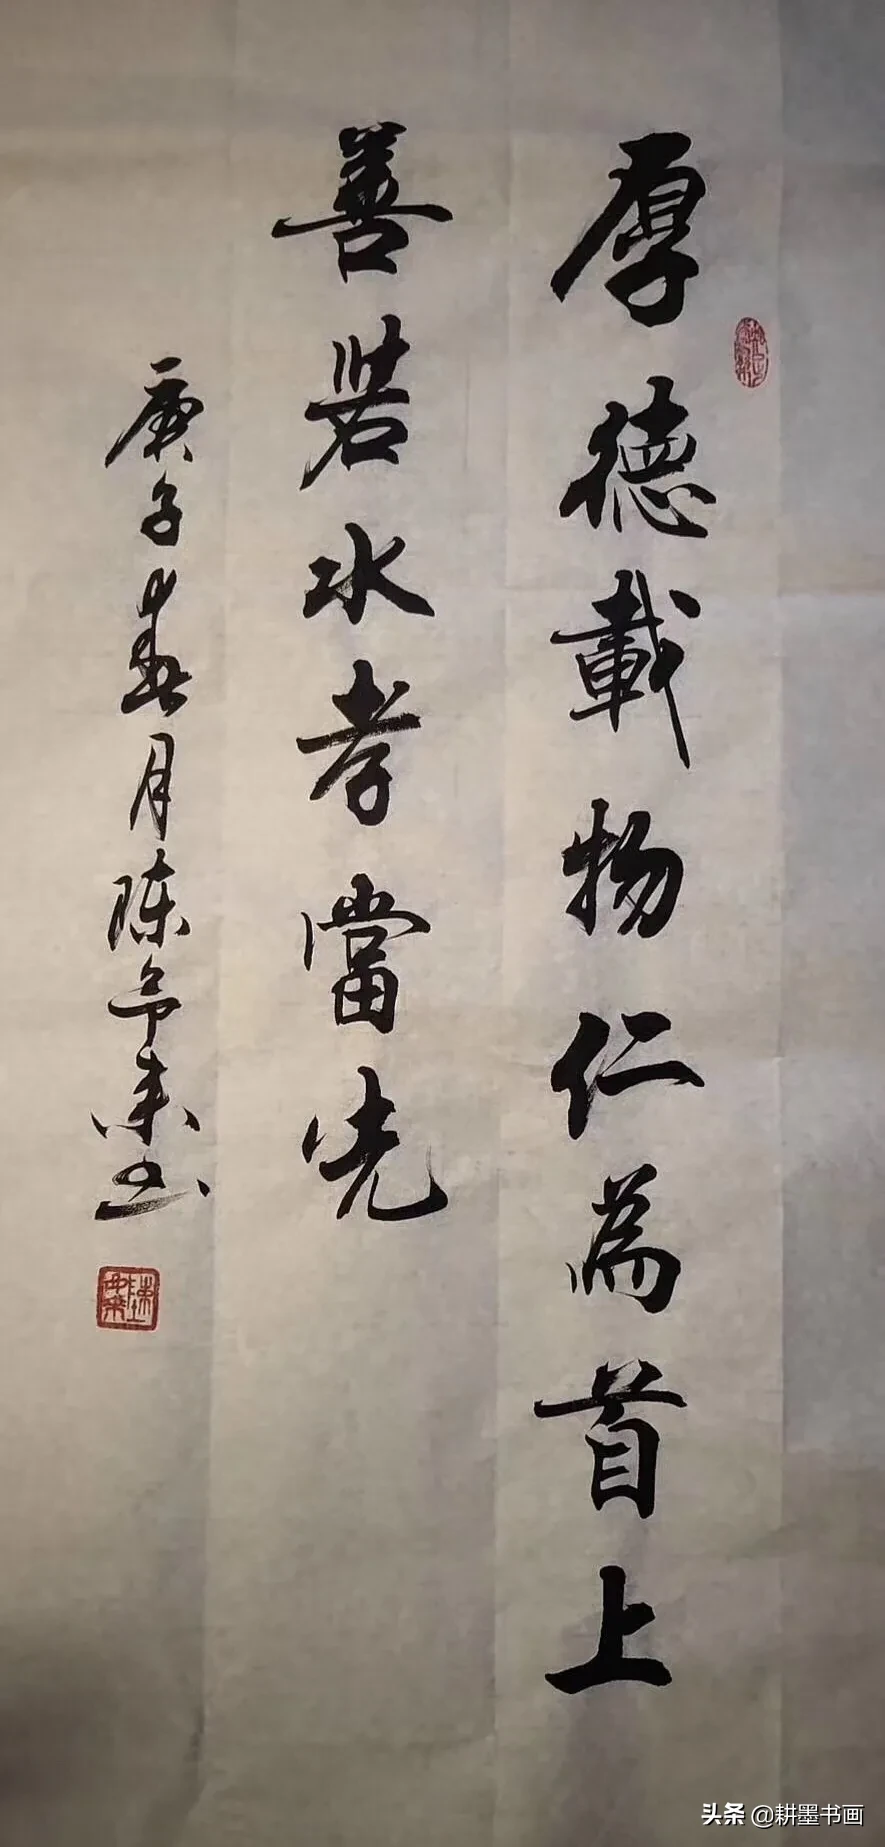 厚德載物仁為首上
善若水孝當先
庚子春月陳令來书
头条 @耕墨书画